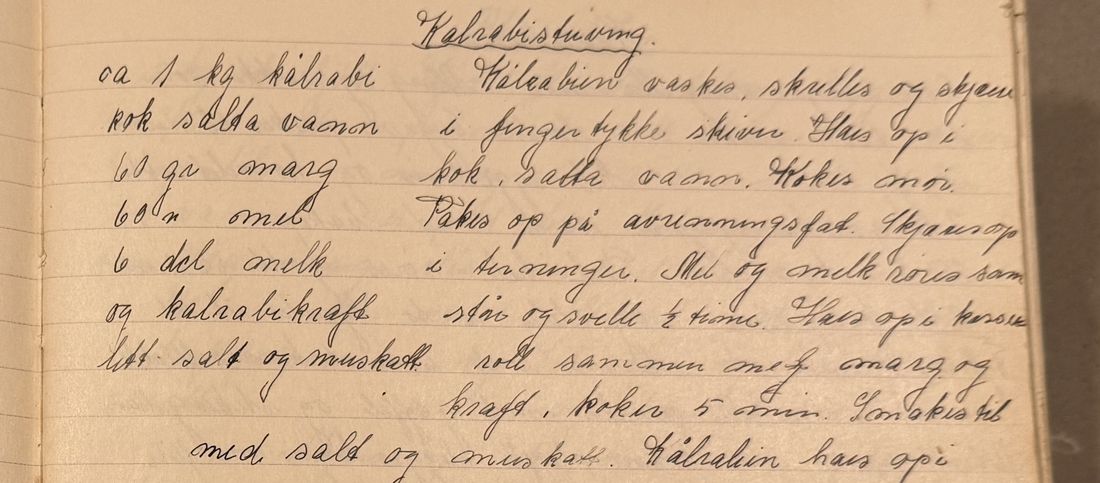 Kalrabistuving.
ca 1 kg kålrabi
kok salta vann
60 gr marg
60 " mel
6 del melk
og kalrabikraft
litt salt og muskatt.
Kålrabien vaskes, skrelles og skjæres
i finger tykke skiver. Haes op i
kok, salta vann. Kokes mør.
Takes op på avrenningsfat. Skjæres op
i terninger. Mel og melk røres sam
står og svelle ½ time. Haes op i
røll sammen med marg og
kraft, koker 5 min. Smakes til
med salt og muskatt. Kålrabien haes op i